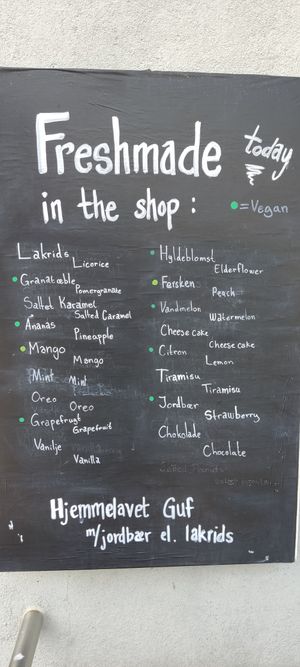 Freshmade today
in the shop :
●=Vegan
Lakrids
Licorice
●Granatæble
Pomergranate
Saltet Karamel
Salted Caramel
●Ananas
Pineapple
●Mango
Mango
Mint
Mint
Oreo
Oreo
●Grapefrugt
Grapefruit
Vanilje
Vanilla
●Hyldeblomst
Elderflower
●Fersken
Peach
●Vandmelon
Watermelon
Cheesecake
Cheesecake
●Citron
Lemon
Tiramisu
Tiramisu
●Jordbær
Strawberry
Chokolade
Chocolate
Hjemmelavet Guf
m/jordbær el. lakrids